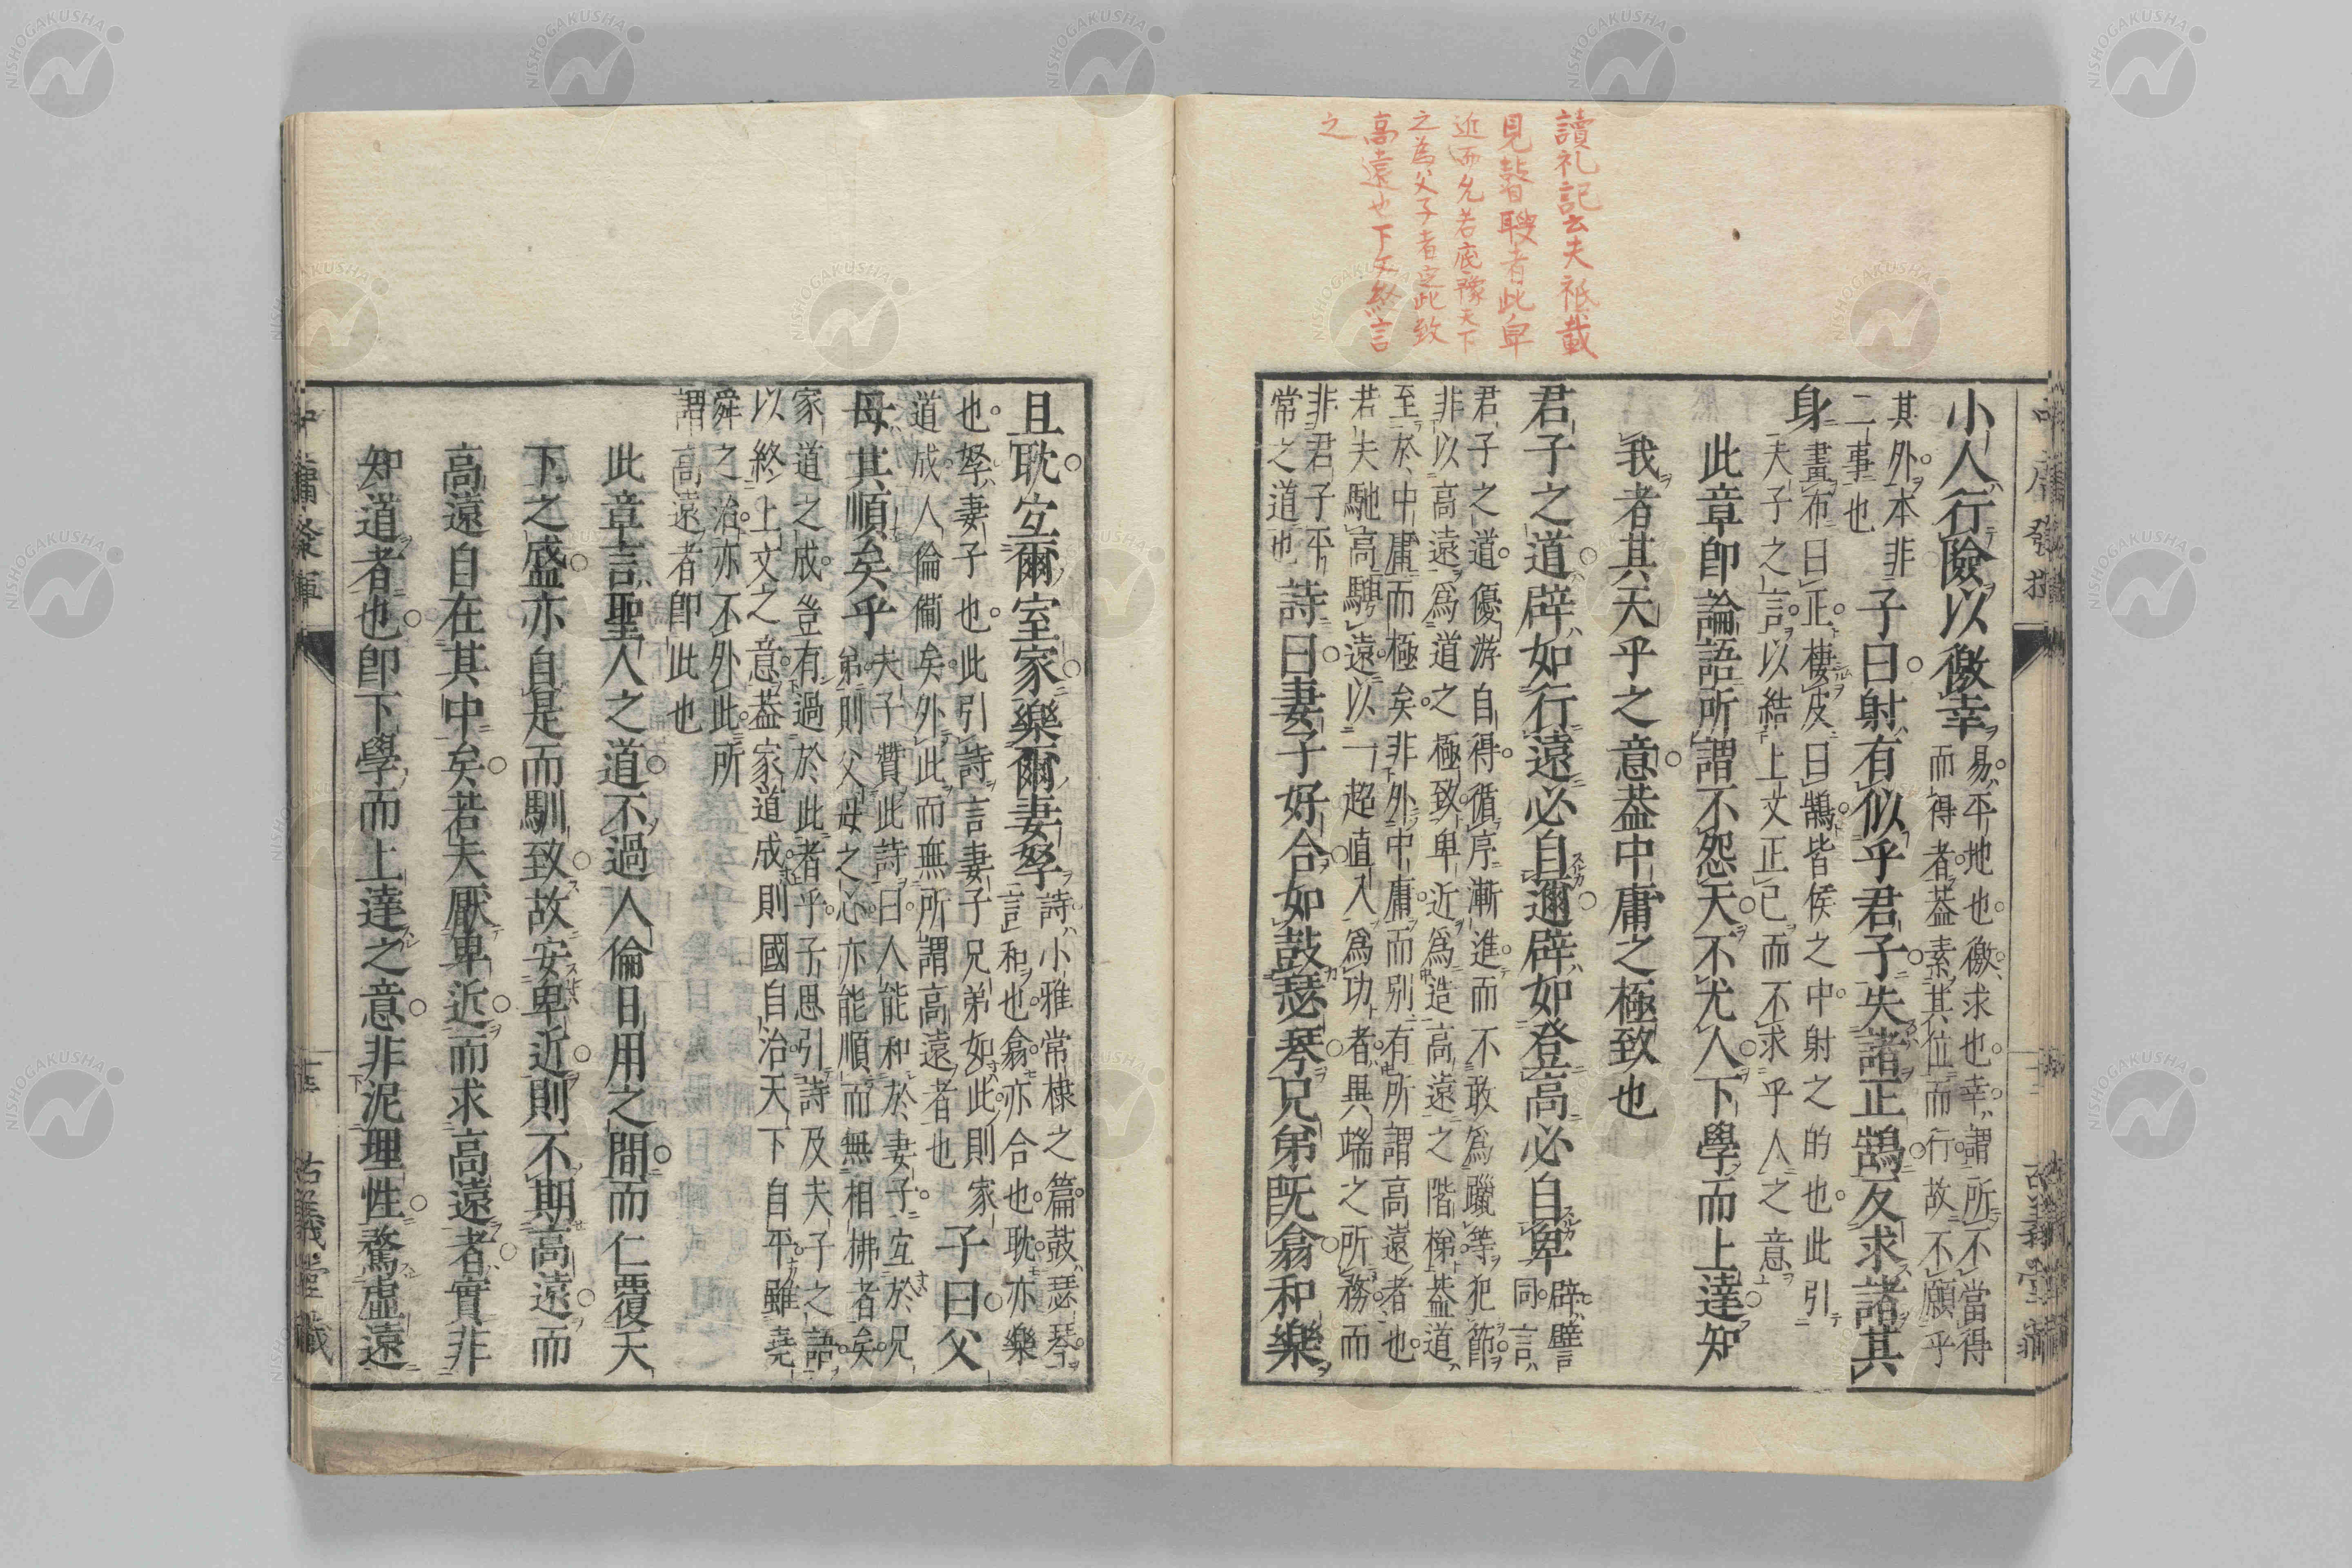 讀礼記云夫祗載
見瞽瞍者此卑
近而允若底豫天下
之為父子者定此致
高遠也下文終言
之
小人行險以徼幸
易平地也徼求也幸謂所不當得
而得者蓋素其位而行故不願乎
其外本非
二事也
子曰射有似乎君子失諸正鵠反求諸其
身
畫布曰正棲皮曰鵠皆侯之中射之的也此引
夫子之言以結上文正己而不求乎人之意
此章卽論語所謂不怨天不尤人下學而上達知
我者其天乎之意蓋中庸之極致也
君子之道辟如行遠必自邇辟如登高必自卑
辟譬
同言
君子之道優游自得循序漸進而不敢爲躐等犯節
非以高遠爲道之極致卑近爲造高遠之階梯蓋道
至於中庸而極矣非外中庸而別有所謂高遠者也
若夫馳高騁遠以一超直入爲功者異端之所務而
非君子平
常之道也
詩曰妻子好合如鼓瑟琴兄弟既翕和樂
且耽宜爾室家樂爾妻孥
詩小雅常棣之篇鼓瑟琴
言和也翕亦合也耽亦樂
也孥妻子也此引詩言妻子兄弟如此則家
道成人倫備矣外此而無所謂高遠者也
子曰父
母其順矣乎
夫子贊此詩曰人能和於妻子宜於兄
弟則父母之心亦能順而無相拂者矣
家道之成豈有過於此者乎子思引詩及夫子之語
以終上文之意蓋家道成則國自治天下自平雖堯
舜之治亦不外此所
謂高遠者卽此也
此章言聖人之道不過人倫日用之間而仁覆天
下之盛亦自是而馴致故安卑近則不期高遠而
高遠自在其中矣若夫厭卑近而求高遠者實非
知道者也卽下學而上達之意非泥理性騖虛遠
中庸發揮
古義堂藏